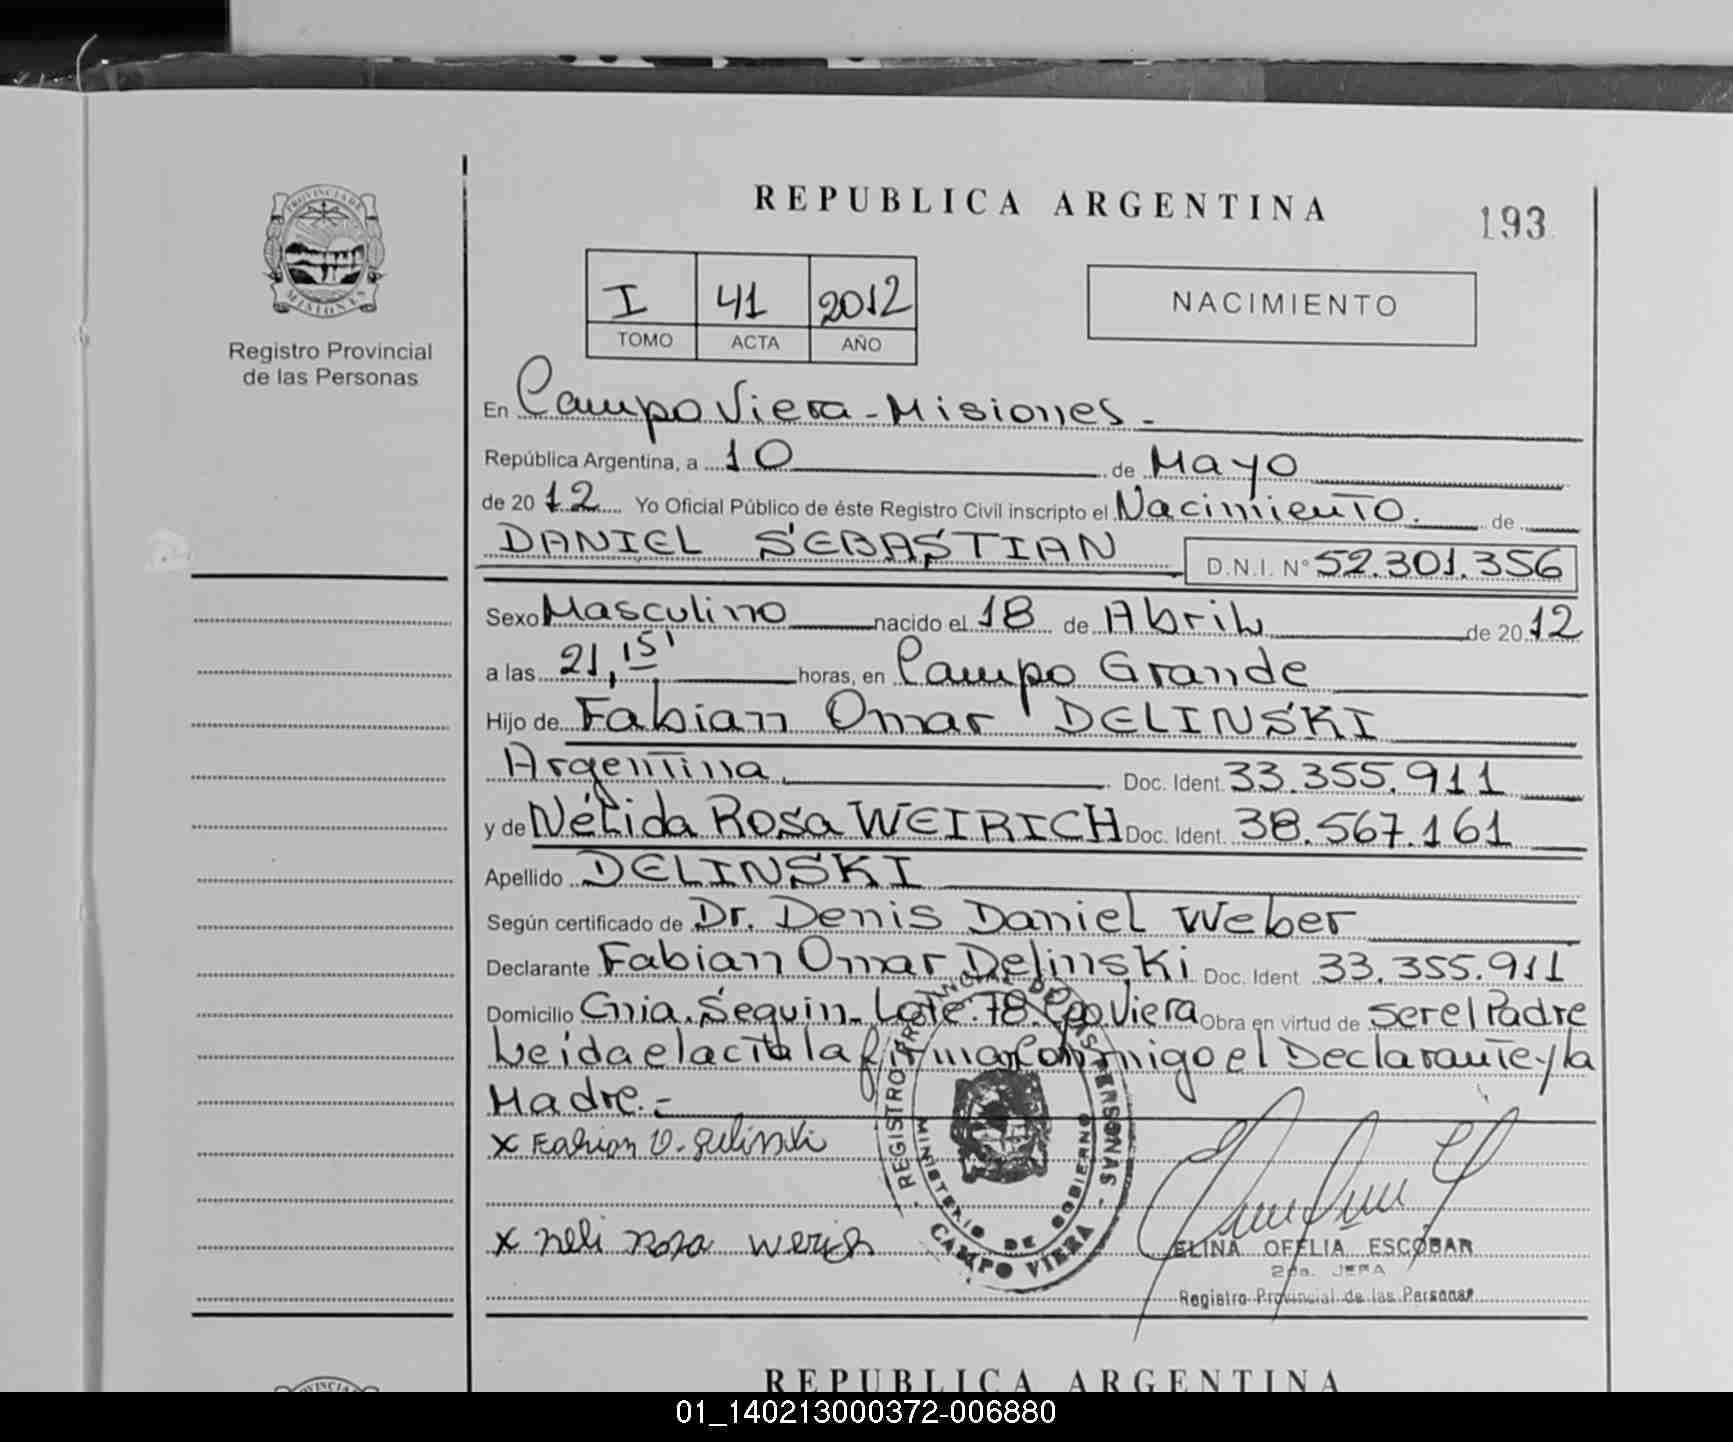 REPUBLICA ARGENTINA
193
PROVINCIA DE
MISIONES
Registro Provincial
de las Personas
I 41 2012
TOMO ACTA AÑO
NACIMIENTO
En Campo Viera - Misiones -
República Argentina, a 10 de Mayo
de 2012 Yo Oficial Público de éste Registro Civil inscripto el Nacimiento. de
DANIEL SEBASTIAN D.N.I. N° 52.301.356
Sexo Masculino nacido el 18 de Abril de 2012
a las 21,15' horas, en Campo Grande
Hijo de Fabian Omar DELINSKI
Argentina Doc. Ident. 33.355.911
y de Nélida Rosa WEIRICH Doc. Ident. 38.567.161
Apellido DELINSKI
Según certificado de Dr. Denis Daniel Weber
Declarante Fabian Omar Delinski Doc. Ident 33.355.911
Domicilio Cnia. Seguin - Lote: 78. Cpo Viera Obra en virtud de ser el Padre
Leida el acta la firma conmigo el Declarante y la
Madre.-
x Fabian O. Delinski
x neli rosa werich
REGISTRO PROVINCIAL DE LAS PERSONAS
MINISTERIO DE GOBIERNO
CAMPO VIERA
ELINA OFELIA ESCOBAR
2da. JEFA
Registro Provincial de las Personas
REPUBLICA ARGENTINA
01_140213000372-006880